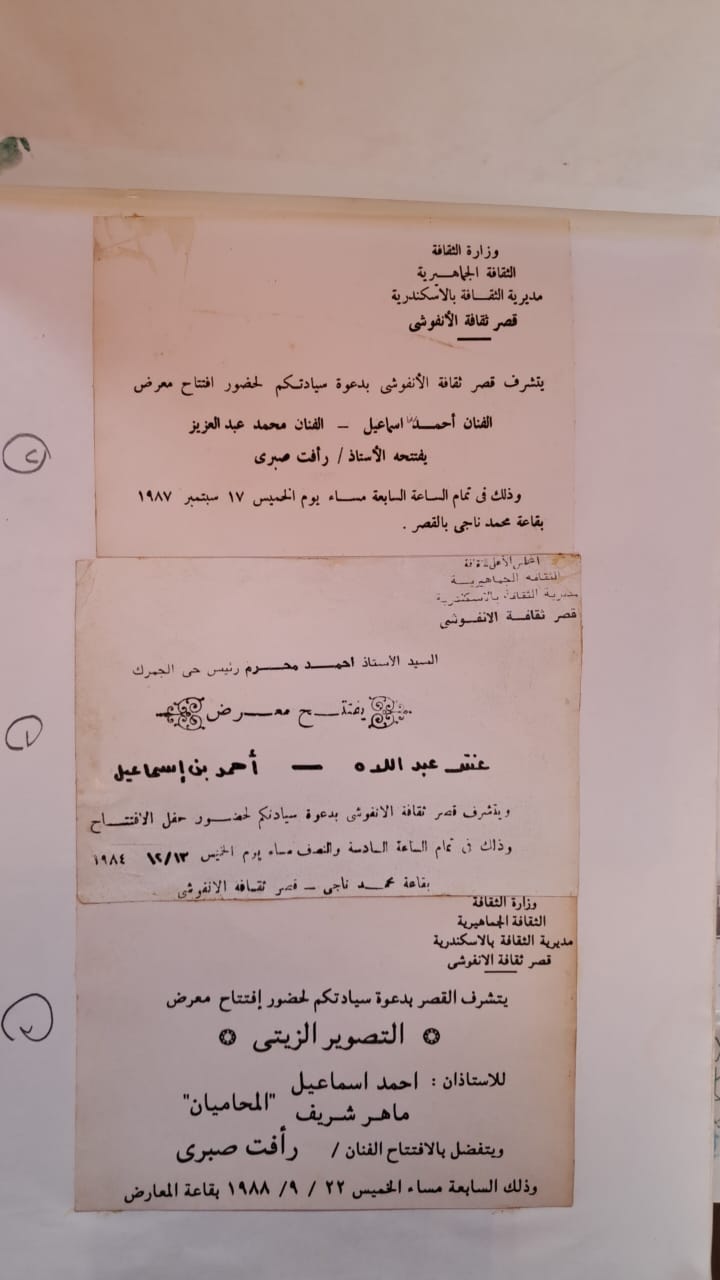 وزارة الثقافة
الثقافة الجماهيرية
مديرية الثقافة بالاسكندرية
قصر ثقافة الأنفوشى
يتشرف قصر ثقافة الأنفوشى بدعوة سيادتكم لحضور افتتاح معرض
الفنان أحمد اسماعيل — الفنان محمد عبد العزيز
يفتتحه الأستاذ / رأفت صبرى
وذلك فى تمام الساعة السابعة مساء يوم الخميس ١٧ سبتمبر ١٩٨٧
بقاعة محمد ناجى بالقصر .
الثقافه الجماهيرية
مديرية الثقافة بالاسكندرية
قصر ثقافة الانفوشى
السيد الاستاذ احمد محرم رئيس حى الجمرك
يفتتح معرض
عبد اللاه — أحمد بن إسماعيل
ويتشرف قصر ثقافة الانفوشى بدعوة سيادتكم لحضور حفل الافتتاح
وذلك فى تمام الساعة السادسة والنصف مساء يوم الخميس ١٢/١٣ ١٩٨٤
بقاعة محمد ناجى — قصر ثقافه الانفوشى
وزارة الثقافة
الثقافة الجماهيرية
مديرية الثقافة بالاسكندرية
قصر ثقافة الانفوشى
يتشرف القصر بدعوة سيادتكم لحضور إفتتاح معرض
التصوير الزيتى
للاستاذان : احمد اسماعيل
ماهر شريف "المحاميان"
ويتفضل بالافتتاح الفنان / رأفت صبرى
وذلك السابعة مساء الخميس ٢٢ / ٩/ ١٩٨٨ بقاعة المعارض